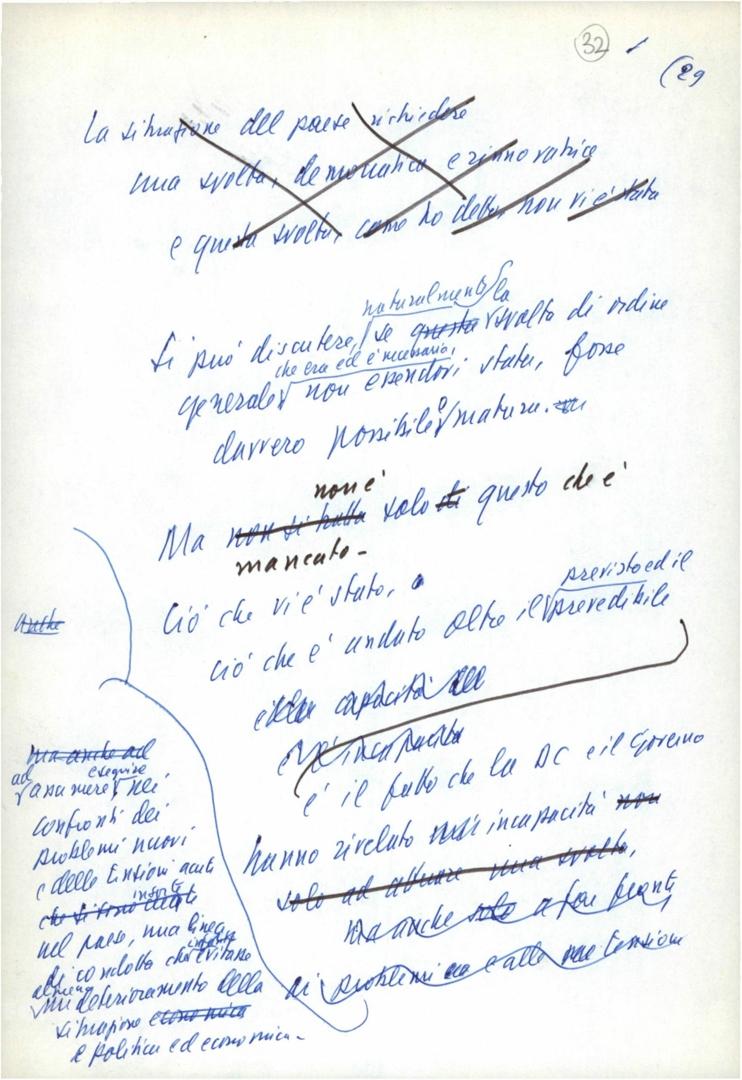 32
(29
La situazione del paese richiedere
una svolta, democratica e rinnovatrice
e questa svolta, come ho detto, non vi è stata
naturalmente la
Si può discutere, se questa svolta di ordine
che era ed è necessaria,
generale non essendovi stata, fosse
davvero possibile o matura.
non è
Ma non si tratta solo di questo che è
mancato -
Ciò che vi è stato,
previsto ed il
ciò che è andato oltre il prevedibile
anche
capacità
incapacità
è il fatto che la DC e il Governo
hanno rivelato incapacità non
solo ad attuare una svolta,
ma anche solo a far fronte
ai problemi e alle tensioni
ma anche ad
ad eseguire
assumere nei
confronti dei
problemi nuovi
e delle tensioni acute
insorte
che si sono
nel paese, una linea
di condotta che evitasse
almeno
un deterioramento della
situazione economica
e politica ed economica -